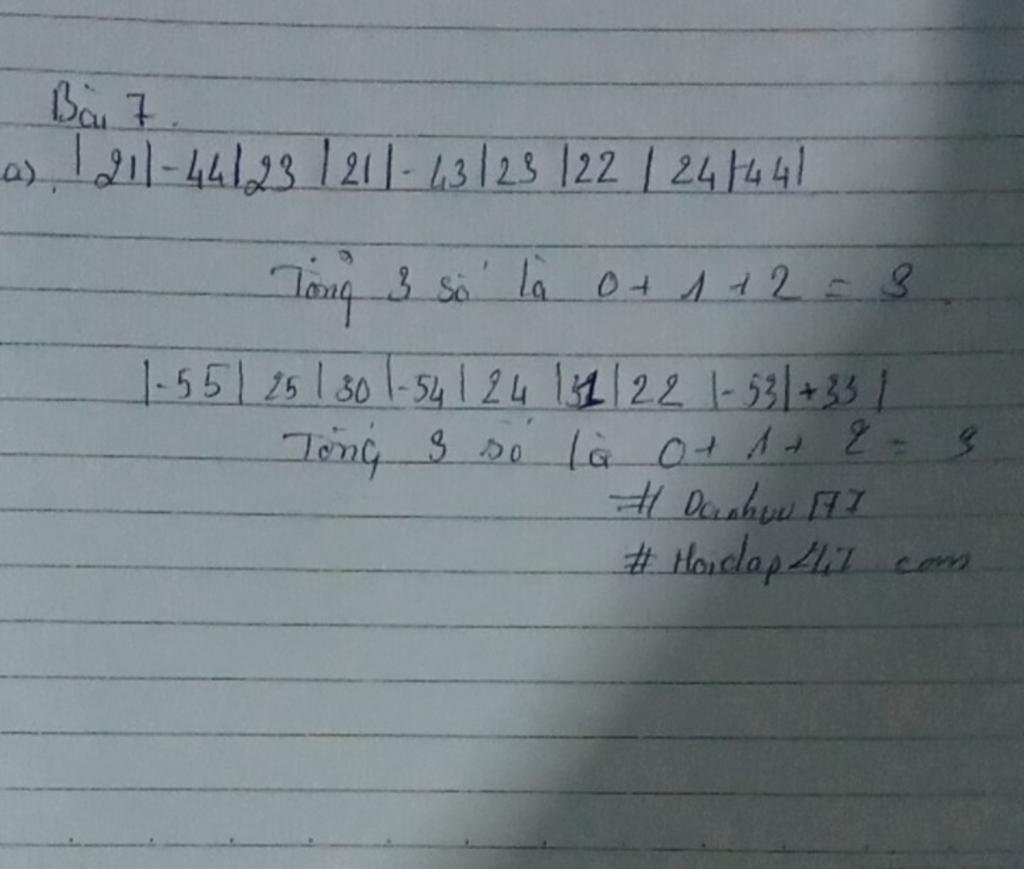 Bài 7.
a). | 21|-44|23 |21|-43|23 |22 | 24|-44|
Tổng 3 số là 0 + 1 + 2 = 3.
|-55| 25 |30 |-54| 24 |31| 22 |-53|+33|
Tổng 3 số là 0 + 1 + 2 = 3
#
# Hoidap247 com